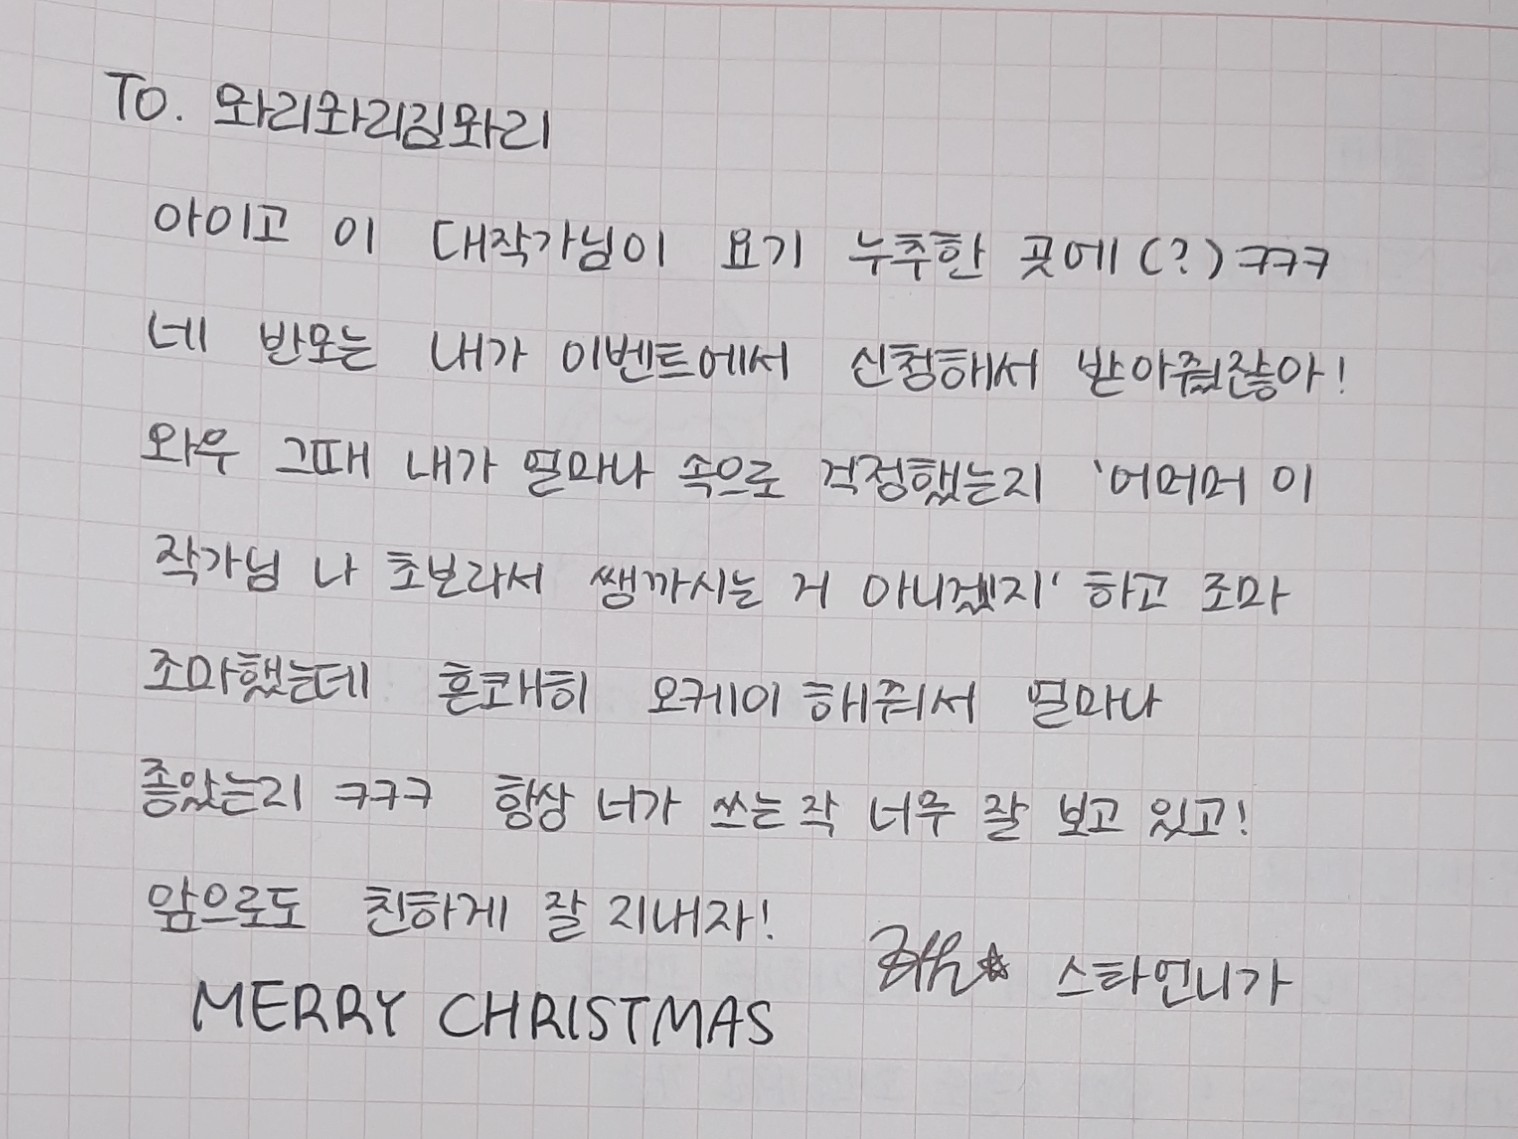 To. 와리와리김와리
아이고 이 대작가님이 요기 누추한 곳에(?) ㅋㅋㅋ
네 반모는 내가 이벤트에서 신청해서 받아줬잖아!
와우 그때 내가 얼마나 속으로 걱정했는지 '어머머 이
작가님 나 초보라서 쌩까시는 거 아니겠지' 하고 조마
조마했는데 흔쾌히 오케이 해줘서 얼마나
좋았는리 ㅋㅋㅋ 항상 너가 쓰는 작 너무 잘 보고 있고!
앞으로도 친하게 잘 지내자!
스타언니가
MERRY CHRISTMAS